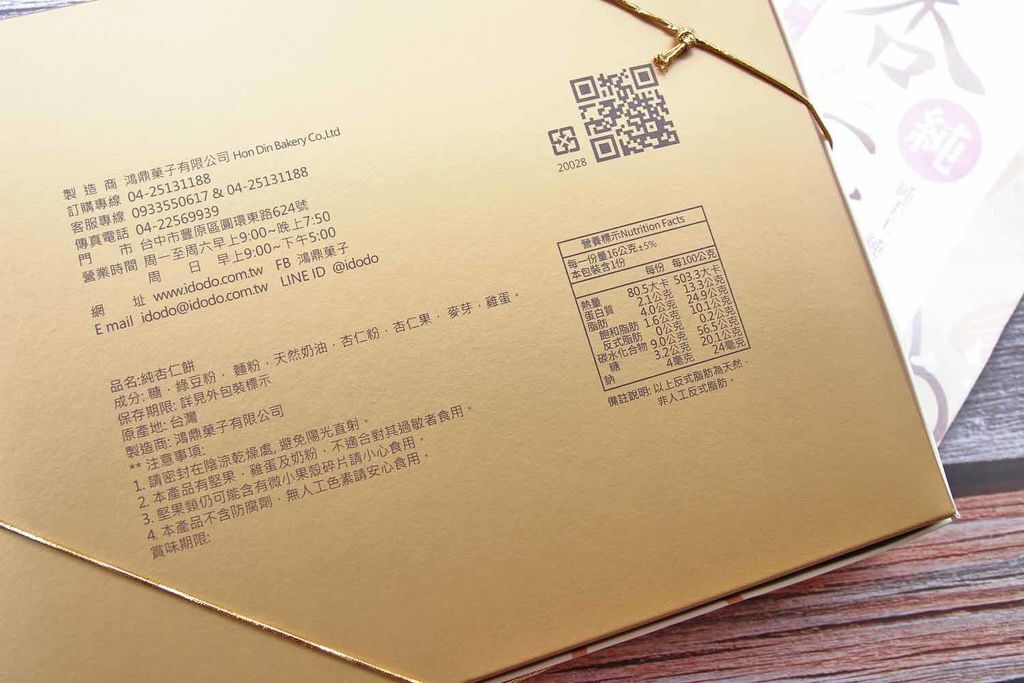 製 造 商 鴻鼎菓子有限公司 Hon Din Bakery Co.,Ltd
訂購專線 04-25131188
客服專線 0933550617 & 04-25131188
傳真電話 04-22569939
門 市 台中市豐原區圓環東路624號
營業時間 周一至周六早上9:00~晚上7:50
周 日 早上9:00~下午5:00
網 址 www.idodo.com.tw FB 鴻鼎菓子
E mail idodo@idodo.com.tw LINE ID @idodo
品名:純杏仁餅
成分: 糖﹒綠豆粉﹒麵粉﹒天然奶油﹒杏仁粉﹒杏仁果﹒麥芽﹒雞蛋。
保存期限: 詳見外包裝標示
原產地: 台灣
製造商: 鴻鼎菓子有限公司
** 注意事項:
1. 請密封在陰涼乾燥處, 避免陽光直射。
2. 本產品有堅果﹒雞蛋及奶粉﹒不適合對其過敏者食用。
3. 堅果類仍可能含有微小果殼碎片請小心食用。
4. 本產品不含防腐劑﹒無人工色素請安心食用。
賞味期限:
20028
營養標示Nutrition Facts
每一份量16公克±5%
本包裝含1份
每份 每100公克
熱量 80.5大卡 503.3大卡
蛋白質 2.1公克 13.3公克
脂肪 4.0公克 24.9公克
飽和脂肪 1.6公克 10.1公克
反式脂肪 0公克 0.2公克
碳水化合物 9.0公克 56.5公克
糖 3.2公克 20.1公克
鈉 4毫克 24毫克
備註說明: 以上反式脂肪為天然﹒
非人工反式脂肪。
純